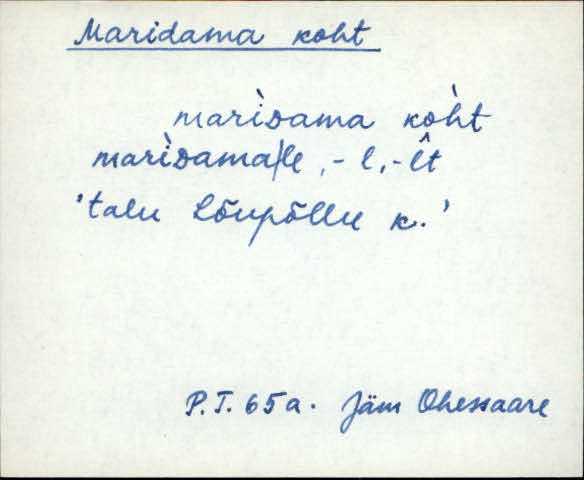 Maridama koht
mariᴅama kòht
mariᴅama|le, -l, -l̂t
'talu Lõupõllu k.'
P.T. 65a. Jäm Ohessaare